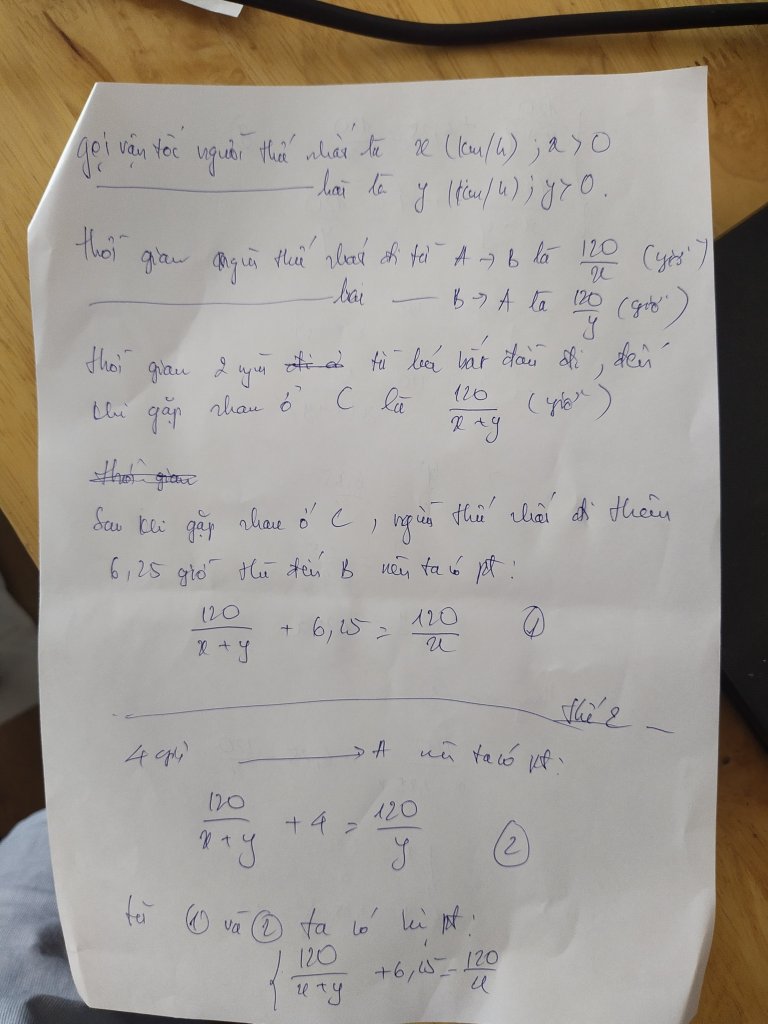 Gọi vận tốc người thứ nhất là x (km/h) ; x > 0
———————— hai là y (km/h) ; y > 0.
Thời gian người thứ nhất đi từ A → B là 120/x (giờ)
———————— hai —— B → A là 120/y (giờ)
Thời gian 2 người đi từ lúc bắt đầu đi, đến
khi gặp nhau ở C là 120/(x+y) (giờ)
Thời gian
Sau khi gặp nhau ở C, người thứ nhất đi thêm
6,25 giờ thì đến B nên ta có pt:
120/(x+y) + 6,25 = 120/x ①
———————— thứ 2 —
4 giờ ———→ A nên ta có pt:
120/(x+y) + 4 = 120/y ②
Từ ① và ② ta có hệ pt:
{ 120/(x+y) + 6,25 = 120/x